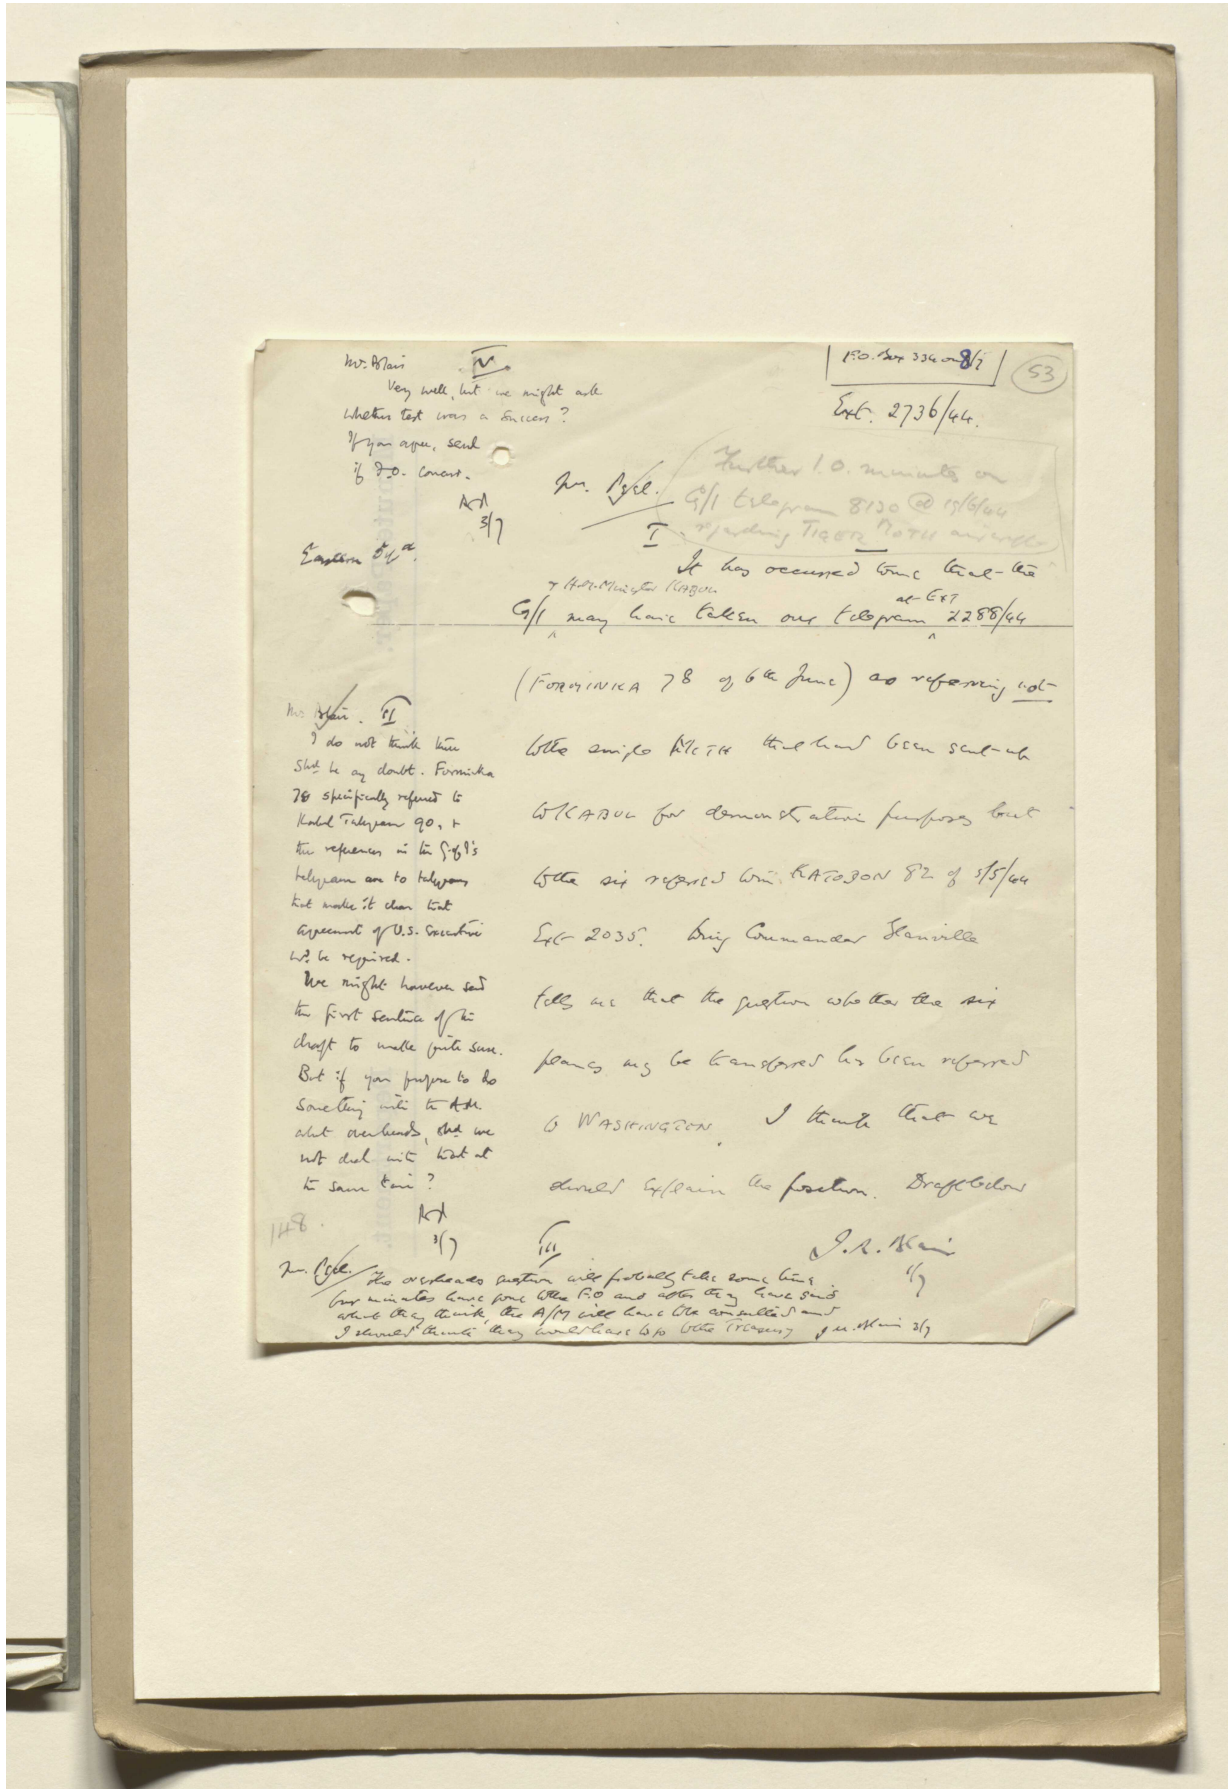 F.O. Box 334 on 8/7
53
Ext. 2736/44.
Further I.O. minutes on
G/I telegram 8130 @ 19/6/44
regarding TIGER MOTH aircraft
Mr. Peel.
I.
It has occurred to me that the
+ H.M. Minister KABUL
at Ext
G/I may have taken our telegram 2288/44
(FORMINKA 78 of 6th June) as referring not
to the single MOTH that had been sent up
to KABUL for demonstration purposes but
to the six referred to in KATODON 82 of 5/5/44
Ext 2035. Wing Commander
tells me that the question whether the six
planes may be transferred has been referred
to WASHINGTON. I think that we
should explain the position. Draft below
J. R. Blair
1/7
Mr. Blair. II
I do not think there
shd be any doubt. Forminka
78 specifically referred to
Kabul Telegram 90, +
the references in the G. of I's
telegram are to telegrams
that make it clear that
agreement of U.S. Executive
wd. be required.
We might however send
the first sentence of the
draft to make quite sure.
But if you propose to do
something with the A.M.
abt overheads, shd we
not deal with that at
the same time?
3/7
148.
III
Mr. Peel. The overheads question will probably take some time.
Our minutes have gone to the F.O and after they have said
what they think, the A/M will have to be consulted and
I should think they would have to go to the Treasury J. R. Blair 3/7
Mr. Blair IV.
Very well, but we might ask
whether test was a success?
If you agree, send
if F.O. concur.
3/7
Eastern Dept.